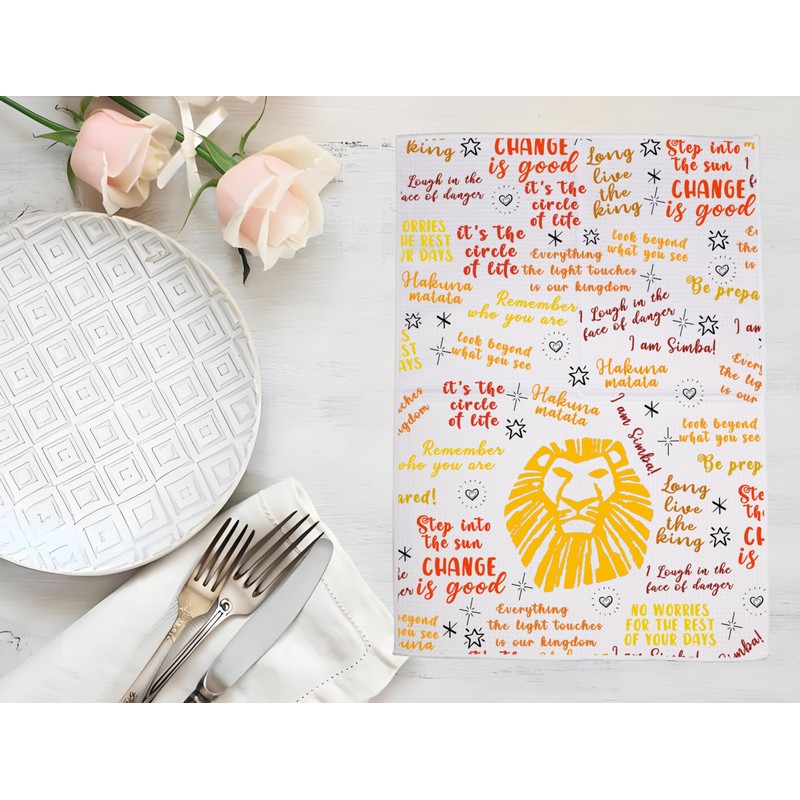 king
CHANGE
is good
Long
live
the
king
Step into
the sun
CHANGE
is good
I Lough in the
face of danger
it's the
circle
of life
ORRIES
HE REST
UR DAYS
it's the
circle
of life
Everything
the light touches
is our kingdom
look beyond
what you see
Hakuna
matata
Remember
who you are
I Lough in the
face of danger
I am Simba!
Be prepa
I am
look beyond
what you see
Hakuna
matata
Every
the lig
is our
S
ST
AYS
it's the
circle
of life
Hakuna
matata
I am Simba!
look beyond
what you see
ches
ngdom
Remember
who you are
Be prep
Long
live
the
king
Step
the
CH
is
ared!
Step into
the sun
CHANGE
is good
I Lough in the
face of danger
Everything
the light touches
is our kingdom
NO WORRIES
FOR THE REST
OF YOUR DAYS
eyond
you see
una
I am Simba!
imba!